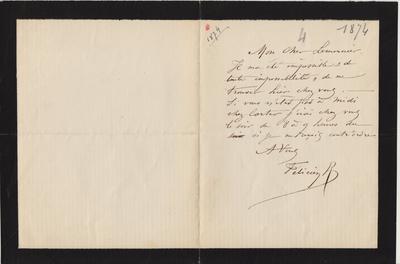 1874
4
1874
Mon cher Lemonnier
Il m'a été impossible, de
toute impossibilité, de me
trouver hier chez vous.
Si vous n'êtes pas à midi
chez j'irai chez vous
le soir de 8 à 9 heures du
soir si je ne reçois contr'ordre
A Vous
Félicien R